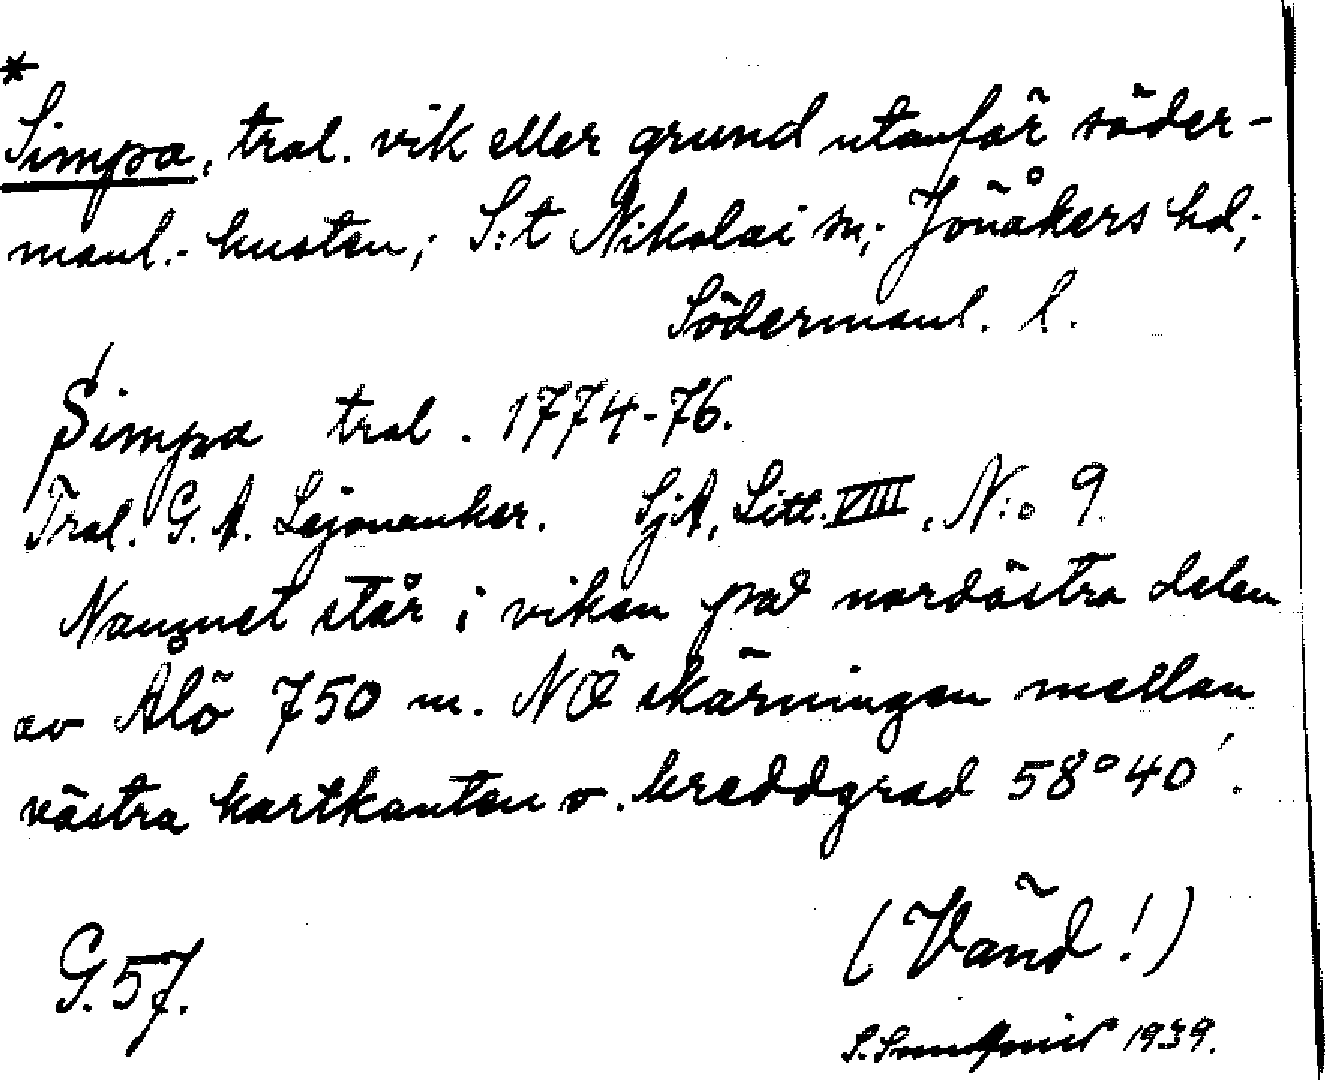 *
Simpa, trol. vik eller grund utanför söder-
manl.-kusten; S:t Nikolai sn; Jönåkers hd;
Södermanl. l.
Simpa trol. 1774-76.
Trol. G. A. Lejonanker. SjA, Litt. VIII, N:o 9.
Namnet står i viken på nordöstra delen
av Ålö 750 m. NÖ skärningen mellan
västra kartkanten o. breddgrad 58°40'.
(Vänd!)
G.57.
S. Sundqvist 1939.